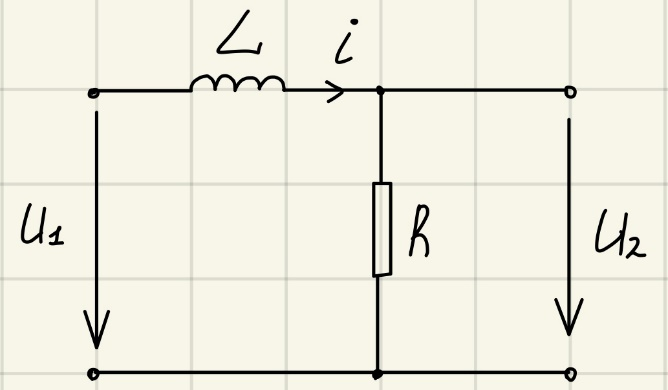 L
i
U1
R
U2